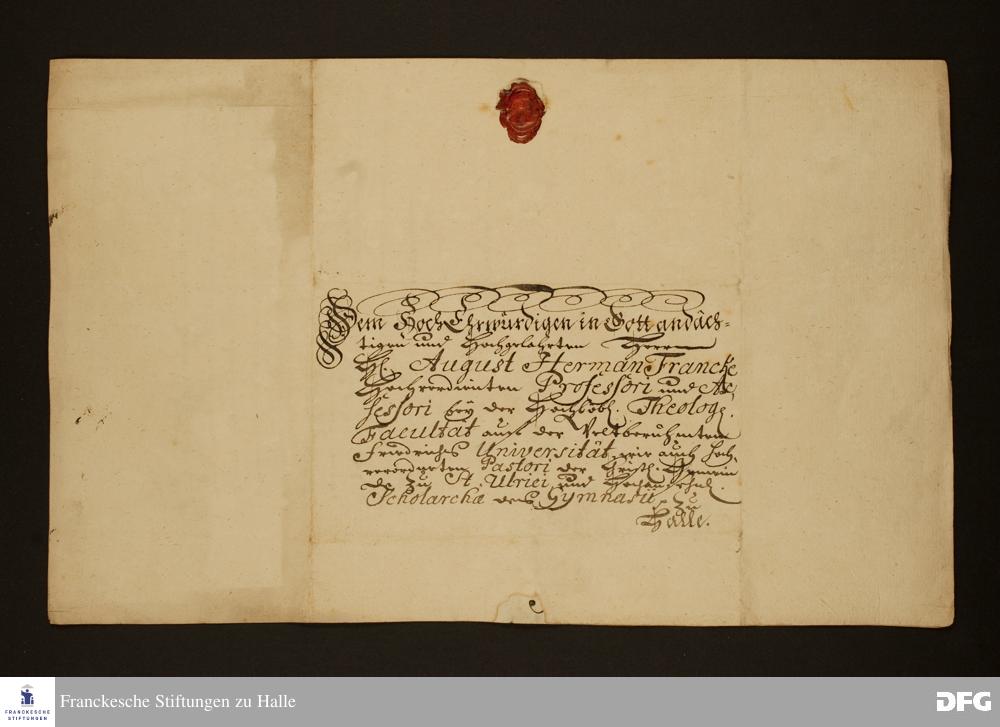 Dem Hoch Ehrwürdigen in Gott andäch-
tigen und Hochgelahrten Herrn
H. August Herman Francke
Hochverordneten Professori und As,
sessori bey der Hochlöbl. Theolog.
Facultät auf der Weltberühmten
Friedrichs Universität, wie auch Hoch,
verordneten Pastori der Christl. Gemein
de zu St. Ulrici und Hochansehnl.
Scholarchæ des Gymnasii zu
Halle.
FRANCKESCHE
STIFTUNGEN
Franckesche Stiftungen zu Halle
DFG